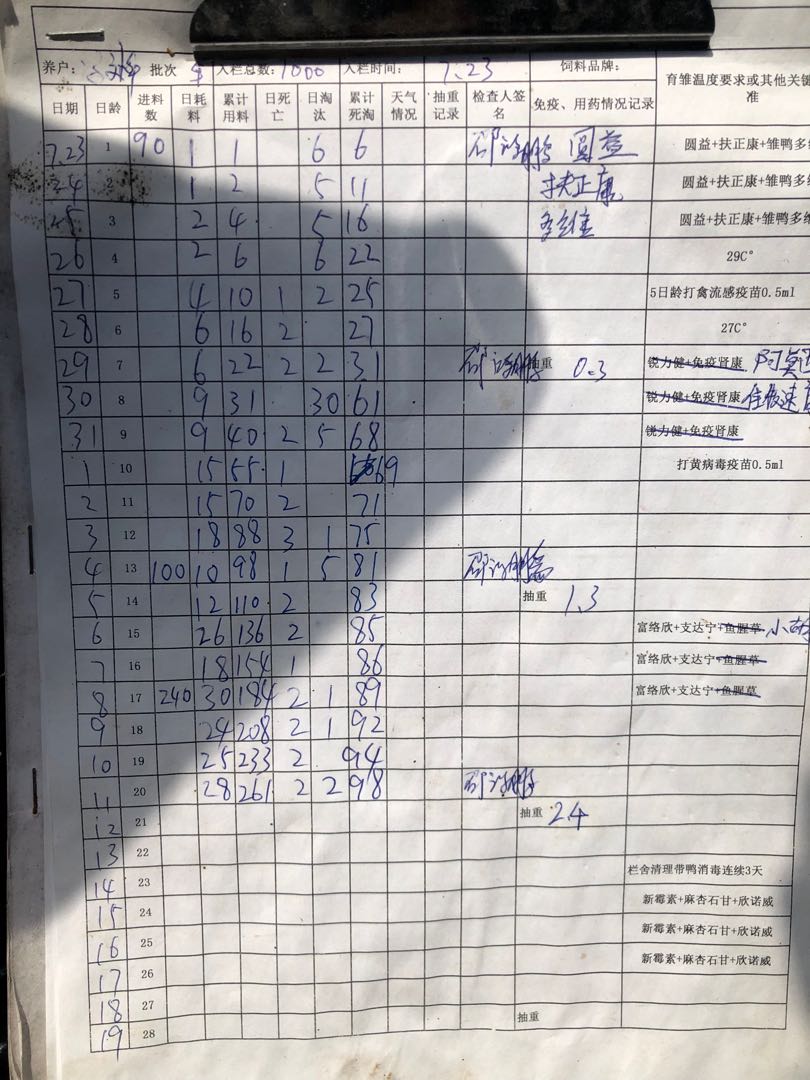 养户： 批次 入栏总数：7000 入栏时间： 7.23 饲料品牌：
育雏温度要求或其他关键
准
日期 日龄 进料数 日耗料 累计用料 日死亡 日淘汰 累计死淘 天气情况 抽重记录 检查人签名 免疫、用药情况记录
7.23 1 90 1 1 6 6 圆益 圆益+扶正康+雏鸭多维
24 2 1 2 5 11 扶正康 圆益+扶正康+雏鸭多维
25 3 2 4 5 16 多维 圆益+扶正康+雏鸭多维
26 4 2 6 6 22 29C°
27 5 4 10 1 2 25 5日龄打禽流感疫苗0.5ml
28 6 6 16 2 27 27C°
29 7 6 22 2 2 31 抽重 0.3 锐力健+免疫肾康
30 8 9 31 30 61 锐力健+免疫肾康
31 9 9 40 2 5 68 锐力健+免疫肾康
1 10 15 55 1 69 打黄病毒疫苗0.5ml
2 11 15 70 2 71
3 12 18 88 3 1 75
4 13 100 10 98 1 5 81
5 14 12 110 2 83 抽重 1.3
6 15 26 136 2 85 富络欣+支达宁+鱼腥草
7 16 18 154 1 86 富络欣+支达宁+鱼腥草
8 17 240 30 184 2 1 89 富络欣+支达宁+鱼腥草
9 18 24 208 2 1 92
10 19 25 233 2 94
11 20 28 261 2 2 98
12 21 抽重 2.4
13 22
14 23 栏舍清理带鸭消毒连续3天
15 24 新霉素+麻杏石甘+欣诺威
16 25 新霉素+麻杏石甘+欣诺威
17 26 新霉素+麻杏石甘+欣诺威
18 27
19 28 抽重